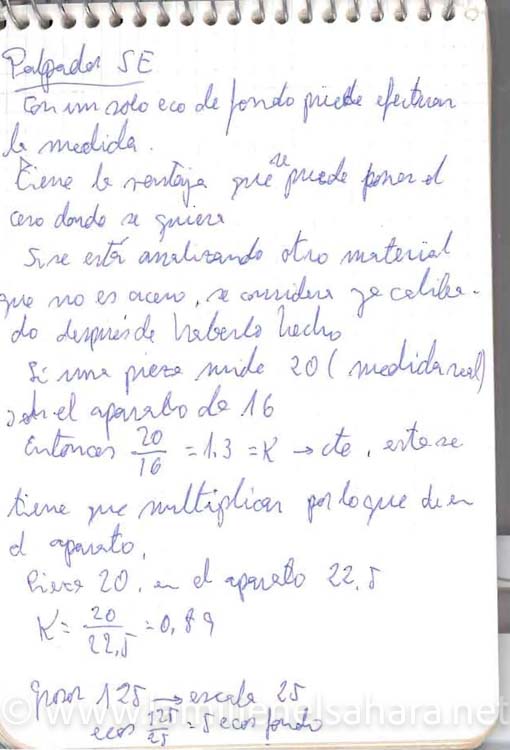 Palpador SE
Con un solo eco de fondo puede efectuar
la medida.
tiene la ventaja que se puede poner el
cero donde se quiera
Si se está analizando otro material
que no es acero, se considera ya calibra-
do después de haberlo hecho
Si una pieza mide 20 (medida real)
el aparato da 16
Entonces 20/16 = 1,3 = K → cte, este se
tiene que multiplicar por lo que de en
el aparato.
Pieza 20, en el aparato 22,5
K = 20/22,5 = 0,89
grosor 125 → escala 25
ecos 125/25 = 5 ecos fondo
© www.familienelsahara.net